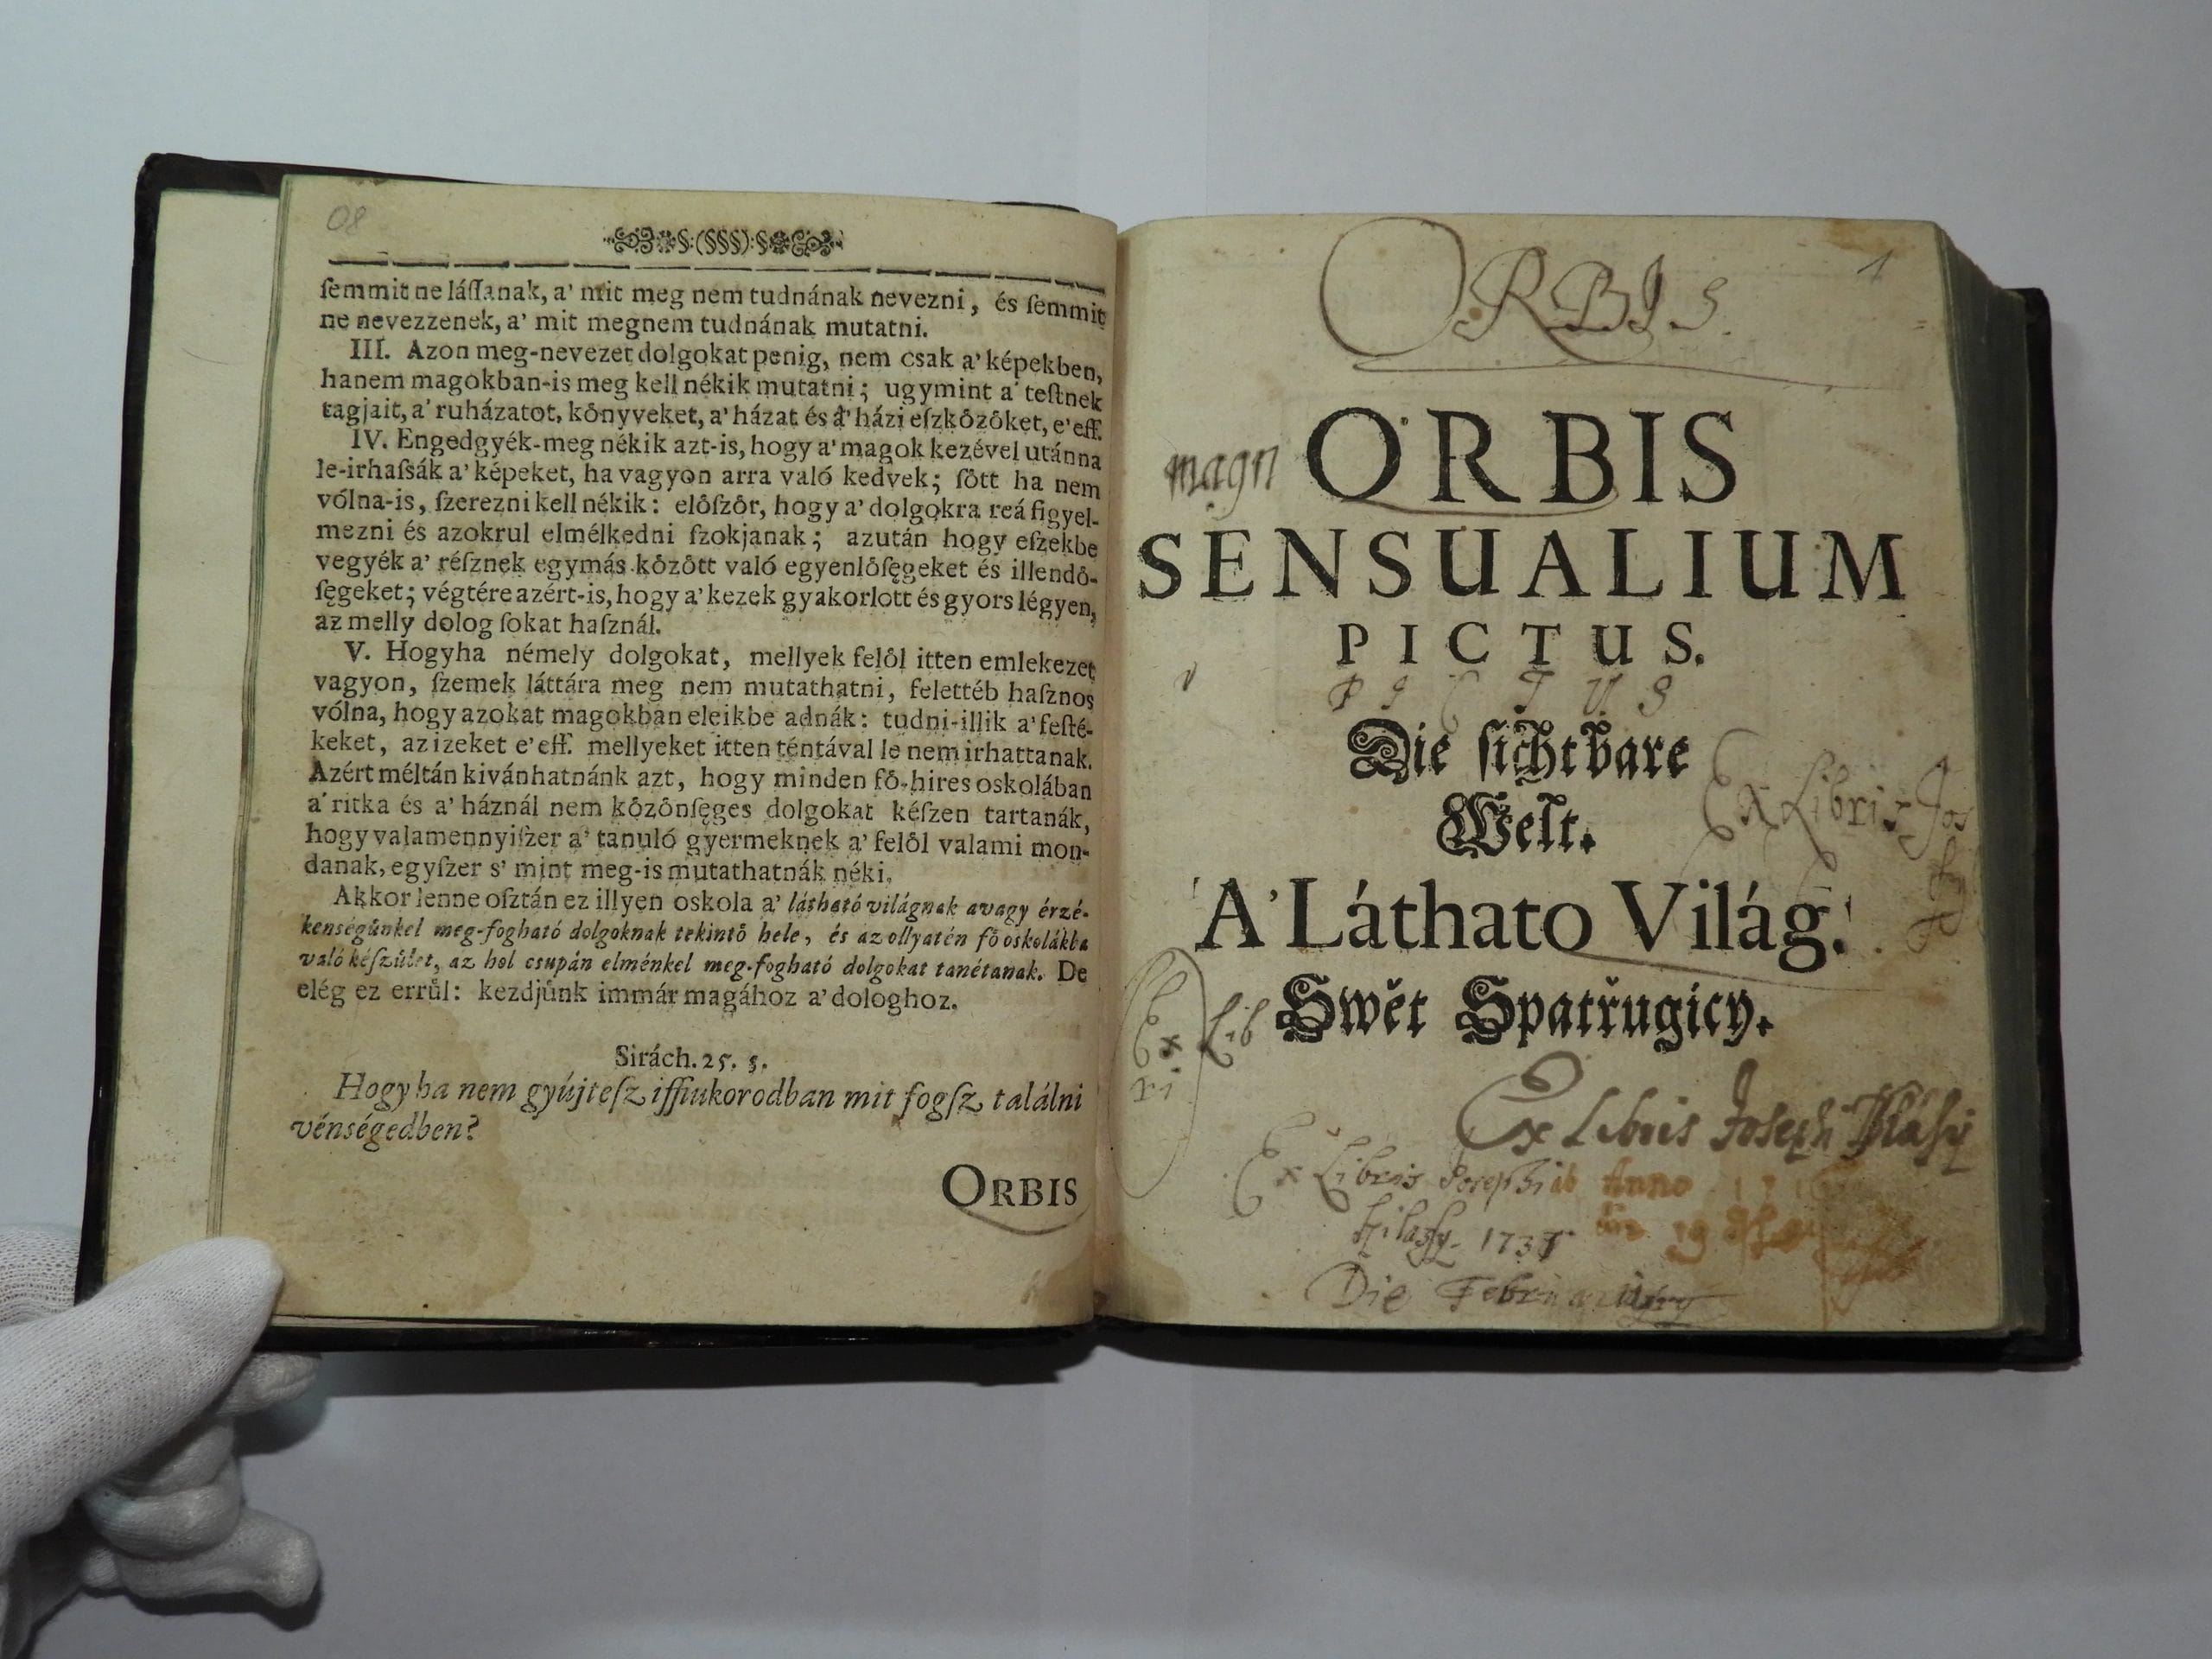 08
§:(§§§):§
ſemmit ne láſſanak, a' mit meg nem tudnának nevezni, és ſemmit
ne nevezzenek, a' mit megnem tudnának mutatni.
III. Azon meg-nevezet dolgokat penig, nem csak a' képekben,
hanem magokban-is meg kell nékik mutatni; ugymint a' teſtnek
tagjait, a' ruházatot, kőnyveket, a' házat és a' házi eſzkőzőket, e' eff.
IV. Engedgyék-meg nékik azt-is, hogy a' magok kezével utánna
le-irhaſsák a' képeket, ha vagyon arra való kedvek; ſőtt ha nem
vólna-is, ſzerezni kell nékik: előſzőr, hogy a' dolgokra reá figyel-
mezni és azokrul elmélkedni ſzokjanak; azután hogy eſzekbe
vegyék a' réſznek egymás kőzőtt való egyenlőſęgeket és illendő-
ſęgeket; végtére azért-is, hogy a' kezek gyakorlott és gyors légyen,
az melly dolog ſokat haſznál.
V. Hogyha némely dolgokat, mellyek felől itten emlekezet
vagyon, ſzemek láttára meg nem mutathatni, felettéb haſznos
vólna, hogy azokat magokban eleikbe adnák: tudni-illik a' feſté-
keket, az izeket e' eff. mellyeket itten téntával le nem irhattanak.
Azért méltán kivánhatnánk azt, hogy minden fő-hires oskolában
a' ritka és a' háznál nem kőzőnſęges dolgokat kéſzen tartanák,
hogy valamennyiſzer a' tanuló gyermeknek a' felől valami mon-
danak, egyſzer s' mint meg-is mutathatnák néki.
Akkor lenne oſztán ez illyen oskola a' látható világnak avagy érzé-
kenségűnkel meg-fogható dolgoknak tekintő hele, és az ollyatén fő oskolákba
való kéſzület, az hol csupán elménkel meg-fogható dolgokat tanétanak. De
elég ez errűl: kezdjűnk immár magához a' dologhoz.
Sirách. 25. 5.
Hogy ha nem gyújteſz iffiukorodban mit fogſz találni
vénségedben?
ORBIS
1
ORBIS.
magn
ORBIS
SENSUALIUM
PICTUS.
PICTUS
Die ſichtbare
Welt.
Ex Libris Jos
A' Láthato Világ.
Swět Spatřugicý.
Ex Lib
ri
Ex Libris Joseph
Ex Libris Josephi Anno
1735 19
Die Februarii